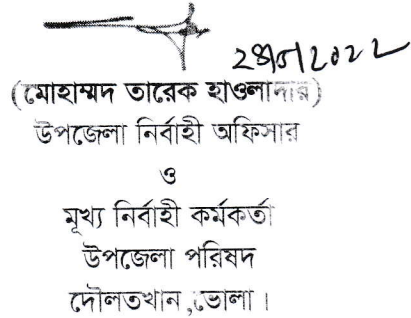 (মোহাম্মদ তারেক হাওলাদার)
উপজেলা নির্বাহী অফিসার
ও
মূখ্য নির্বাহী কর্মকর্তা
উপজেলা পরিষদ
দৌলতখান,ভোলা।